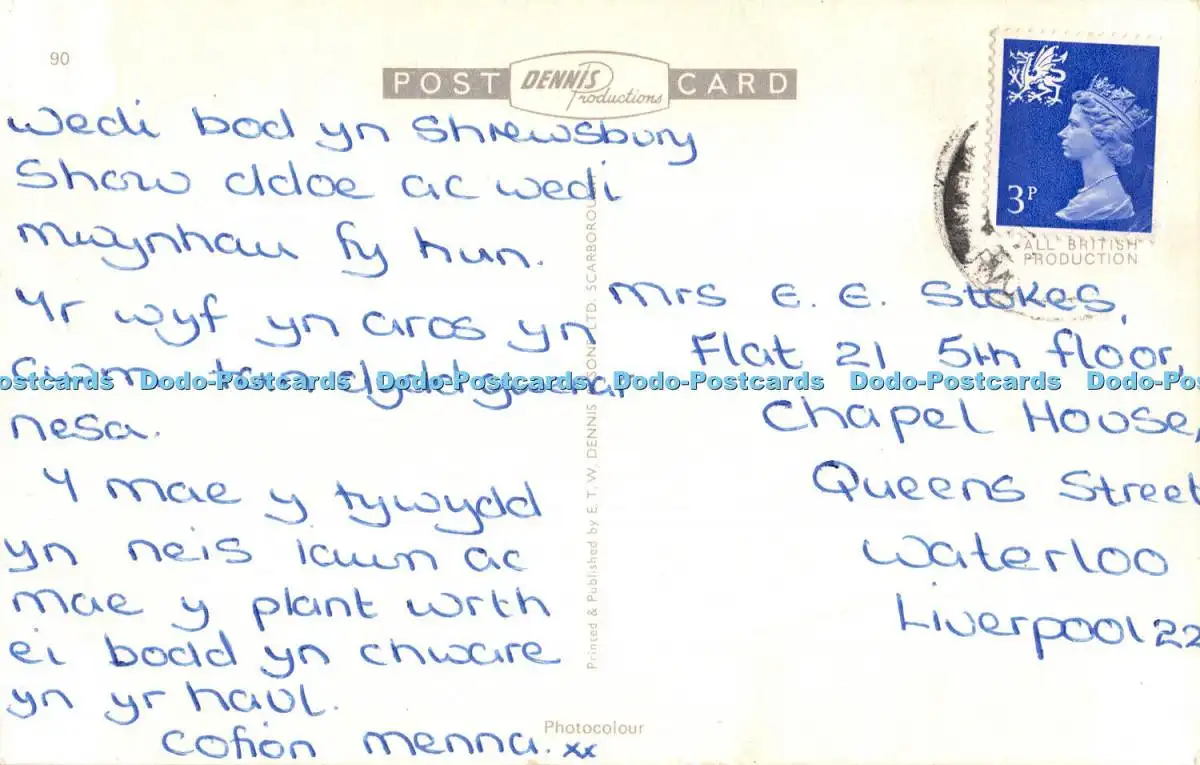 90
POST DENNIS Productions CARD
3P
ALL BRITISH
PRODUCTION
Wedi bod yn Shrewsbury
Show ddoe ac wedi
mwynhau fy hun.
Yr wyf yn aros yn
tan dydd gwener
nesa.
Y mae y tywydd
yn neis iawn ac
mae y plant wrth
ei bodd yn chware
yn yr haul.
Cofion Menna. xx
Printed & Published by E. T. W. DENNIS & SONS LTD. SCARBOROUGH
Mrs E. E. Stokes,
Flat 21 5th floor,
Chapel House,
Queens Street
Waterloo
Liverpool 22
Photocolour
Dodo-Postcards Dodo-Postcards Dodo-Postcards Dodo-Postcards Dodo-Postcards Dodo-Postcards